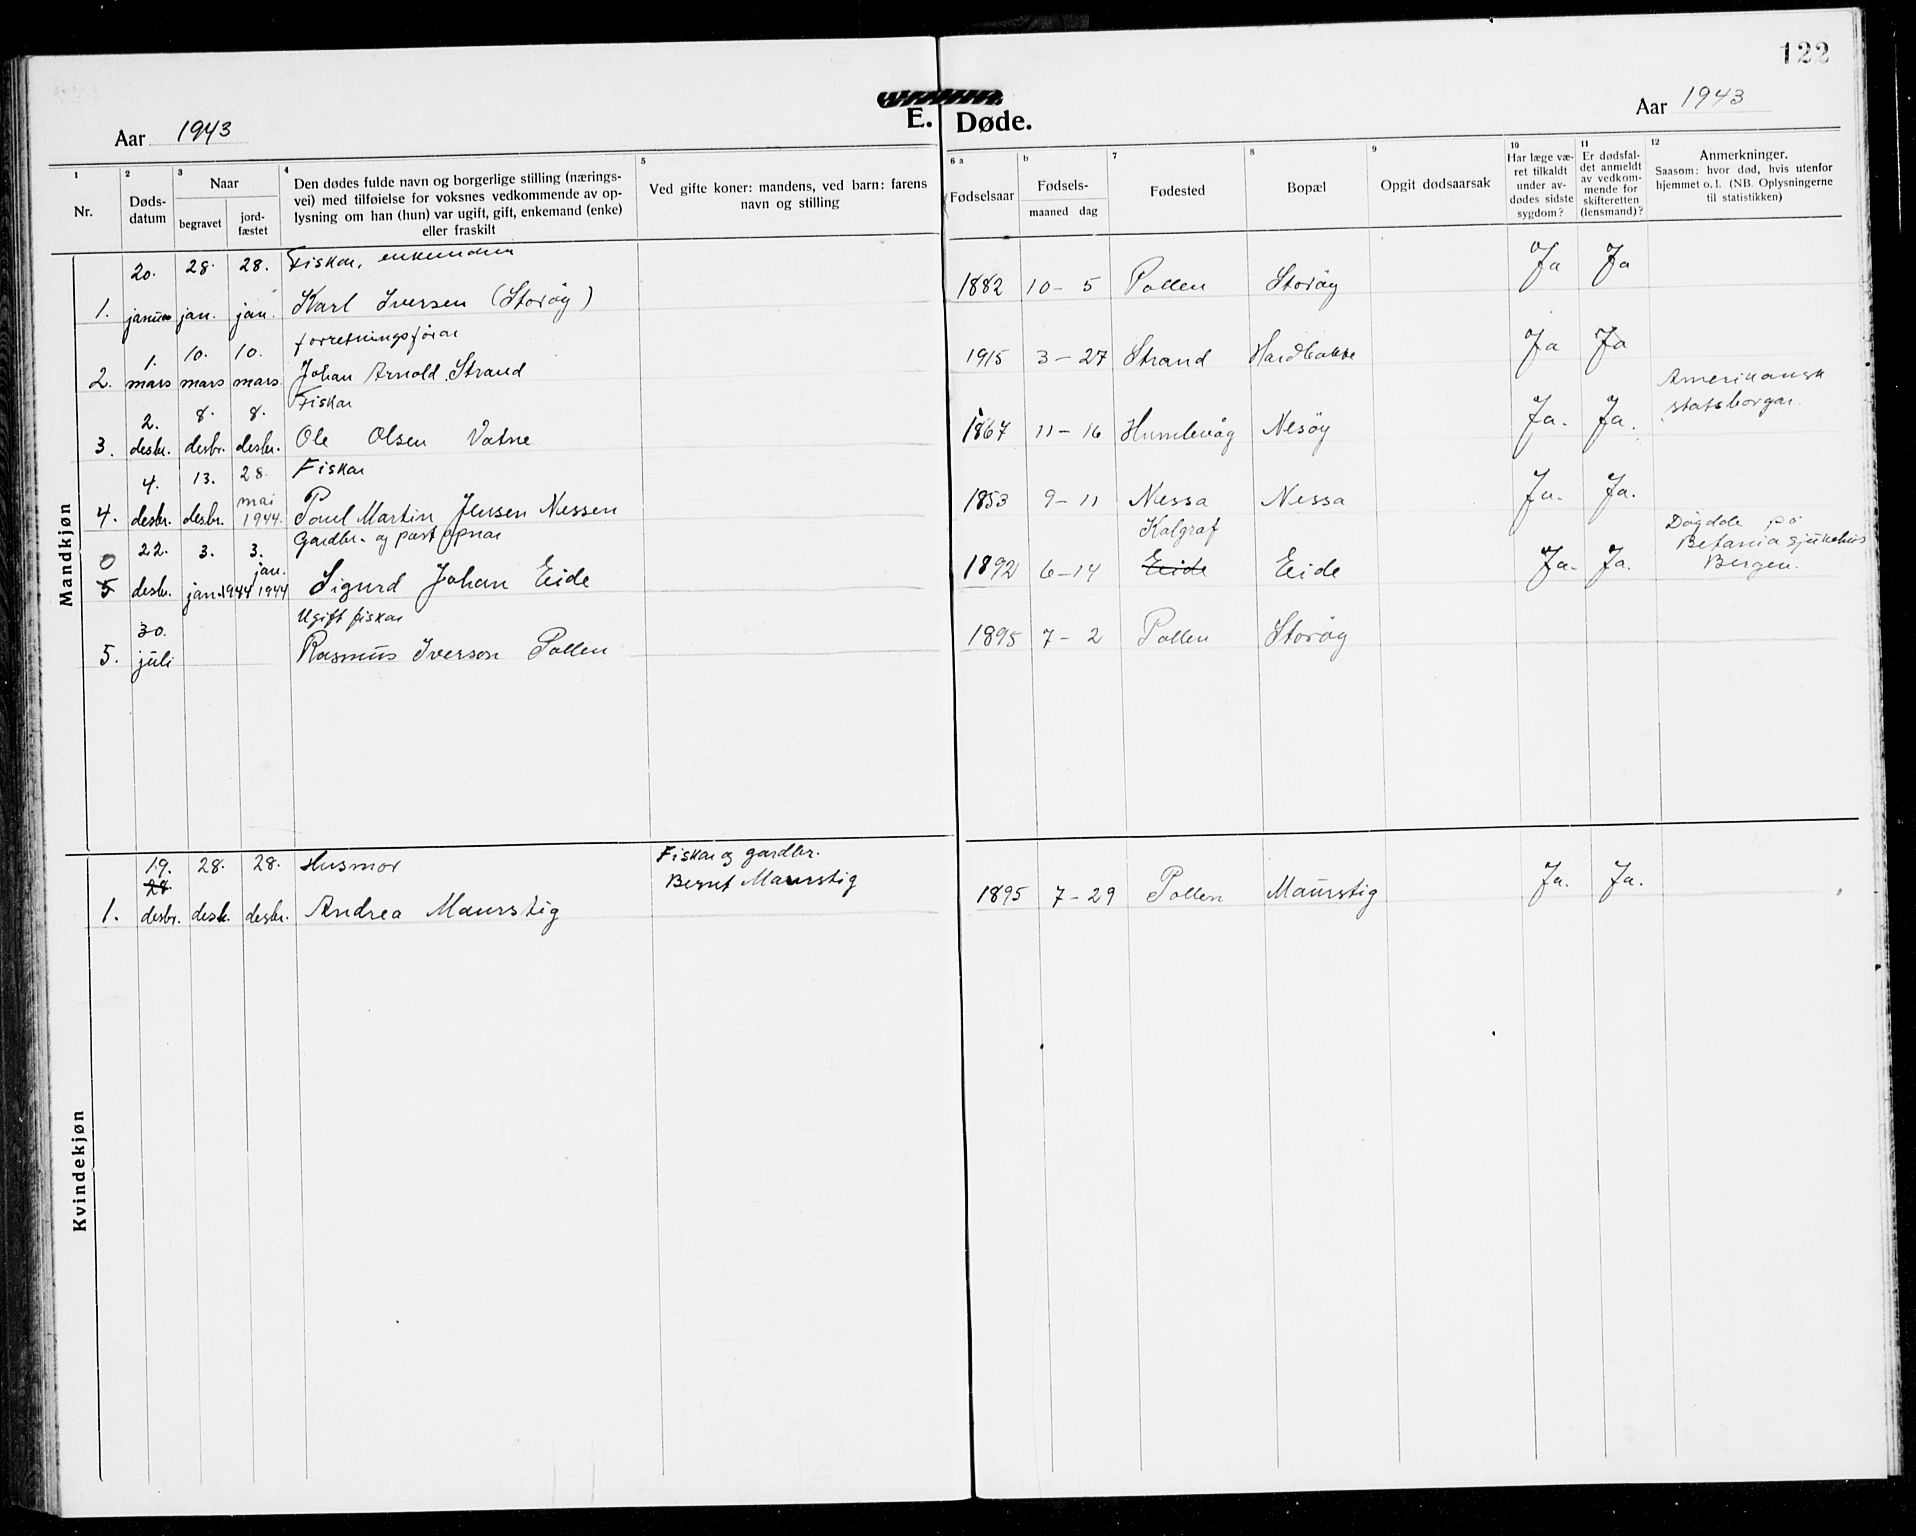 122
Aar 1943
E. Døde.
Aar 1943
1
Nr.
2
Døds-
datum
3
Naar
begravet
jord-
fæstet
4
Den dødes fulde navn og borgerlige stilling (nærings-
vei) med tilføielse for voksnes vedkommende av op-
lysning om han (hun) var ugift, gift, enkemand (enke)
eller fraskilt
5
Ved gifte koner: mandens, ved barn: farens
navn og stilling
6 a
Fødselsaar
b
Fødsels-
maaned dag
7
Fødested
8
Bopæl
9
Opgit dødsaarsak
10
Har læge væ-
ret tilkaldt
under av-
dødes sidste
sygdom?
11
Er dødsfal-
det anmeldt
av vedkom-
mende for
skifteretten
(lensmand)?
12
Anmerkninger.
Saasom: hvor død, hvis utenfor
hjemmet o. l. (NB. Oplysningerne
til statistikken)
Mandkjøn
20. 28. 28. Fiskar, enkemann
1. januar jan. jan. Karl Iversen (Storøy) 1882 10 - 5 Pollen Storøy Ja Ja
1. 10. 10. forretningsførar
2. mars mars mars. Johan Arnold Strand 1915 3 - 27 Strand Hardbakke Ja Ja
2. 8. 8. Fiskar Amerikansk
statsborgar.
3. desbr. desbr. desbr. Ole Olsen Vatne 1867 11 - 16 Humlevåg Nesøy Ja. Ja.
4. 13. 28. Fiskar
mai
4. desbr. desbr. 1944. Poul Martin Jensen Nessen 1853 9 - 11 Nessa Nessa Ja. Ja.
22. 3. 3. Gardbr. og postopnar Kalgraf Døgdde på
0 jan. Betania sjukehus
5 desbr. jan. 1944 1944 Sigurd Johan Eide 1892 6 - 14 Eide Eide Ja. Ja. Bergen.
30. Ugift fiskar
5. juli Rasmus Iverson Pollen 1895 7 - 2 Pollen Storøy
Kvindekjøn
19. 28. 28. Husmor Fiskar og gardbr.
28. Bernt Maurstig
1. desbr. desbr. desbr. Andrea Maurstig 1895 7 - 29 Pollen Maurstig Ja. Ja.